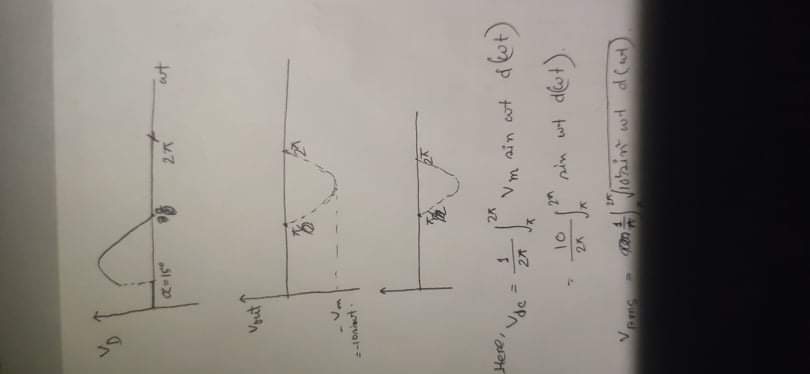 V_D
α=15° 2π ωt
Vout
π 2π
-Vm
=-10sinωt.
π 2π
Here, V_dc = 1/2π ∫_π^2π Vm sin ωt d(ωt)
= 10/2π ∫_π^2π sin ωt d(ωt).
V_RMS = ∫_π^2π √10² sin² ωt d(ωt).